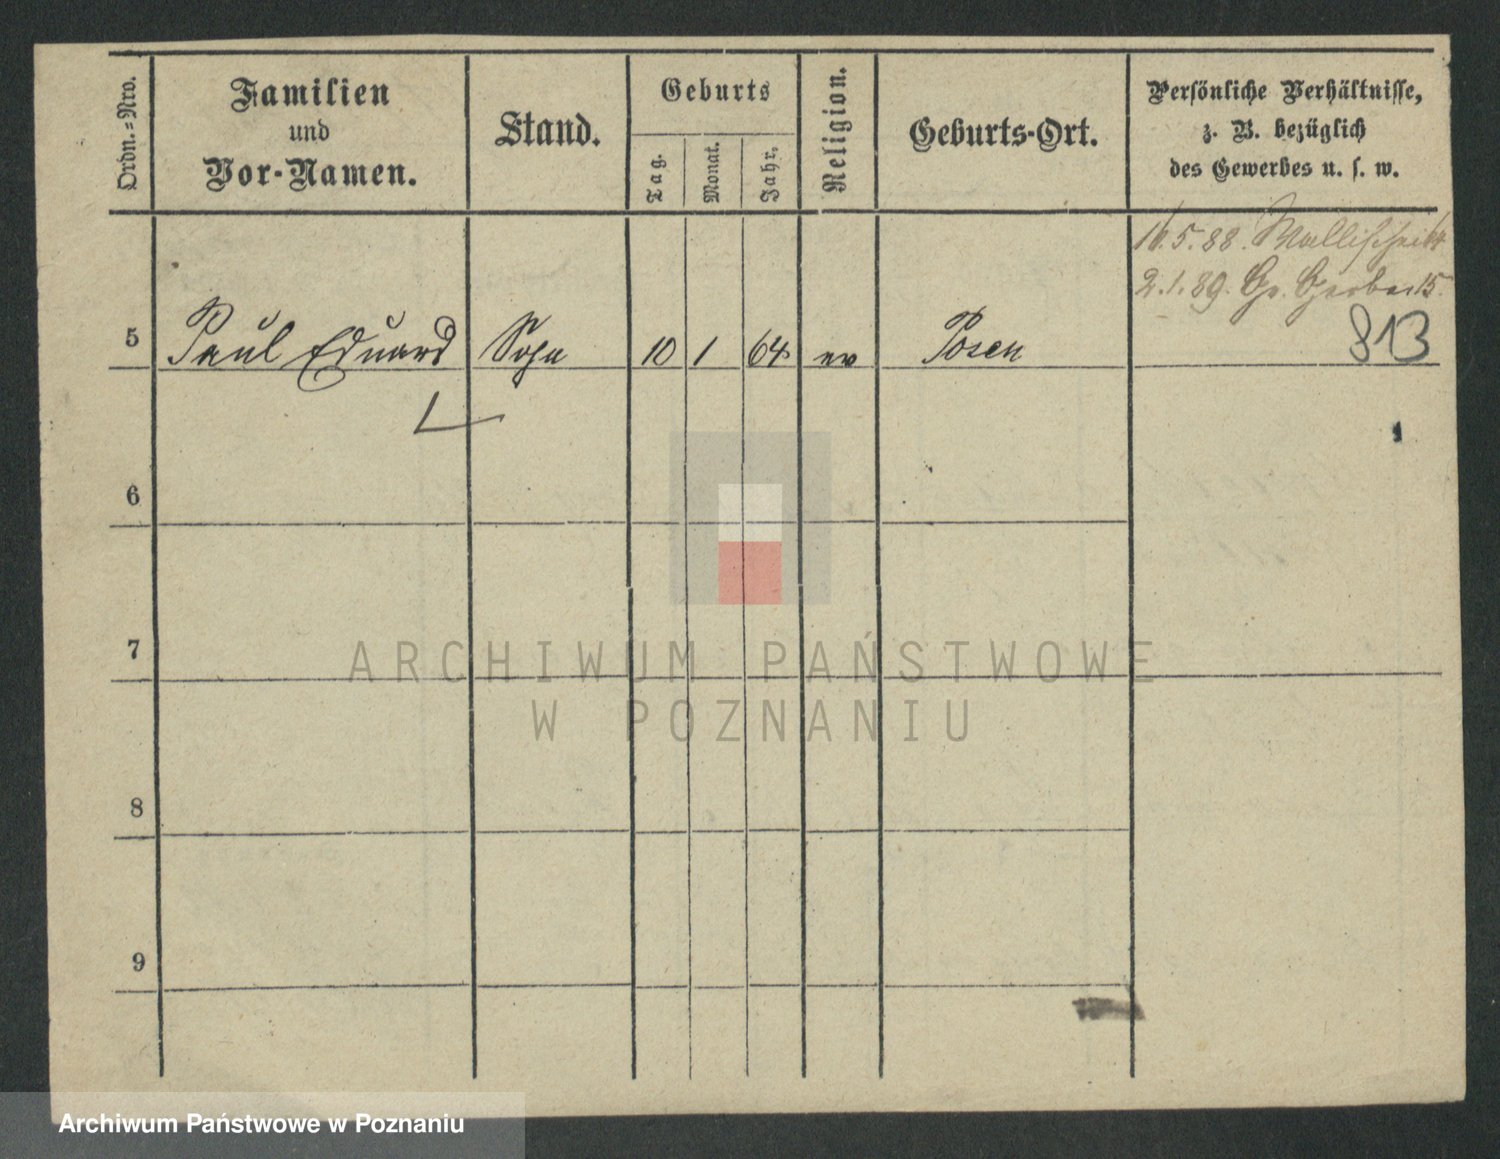 Ordn.-Nro.
Familien
und
Vor-Namen.
Stand.
Geburts
Tag.
Monat.
Jahr.
Religion.
Geburts-Ort.
Persönliche Verhältnisse,
z. B. bezüglich
des Gewerbes u. s. w.
5.88.
2.1.89. Gr. Gerber 15.
5 Paul Eduard Sohn 10 1 64 ev Posen 813
6
7
8
9
ARCHIWUM PAŃSTWOWE
W POZNANIU
Archiwum Państwowe w Poznaniu